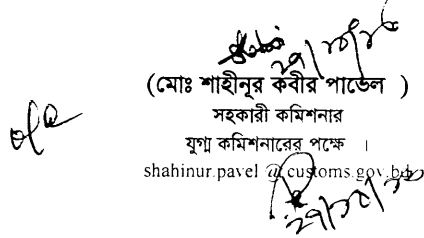 (মোঃ শাহীনূর কবীর পাভেল )
সহকারী কমিশনার
যুগ্ম কমিশনারের পক্ষে ।
shahinur.pavel @customs.gov.bd